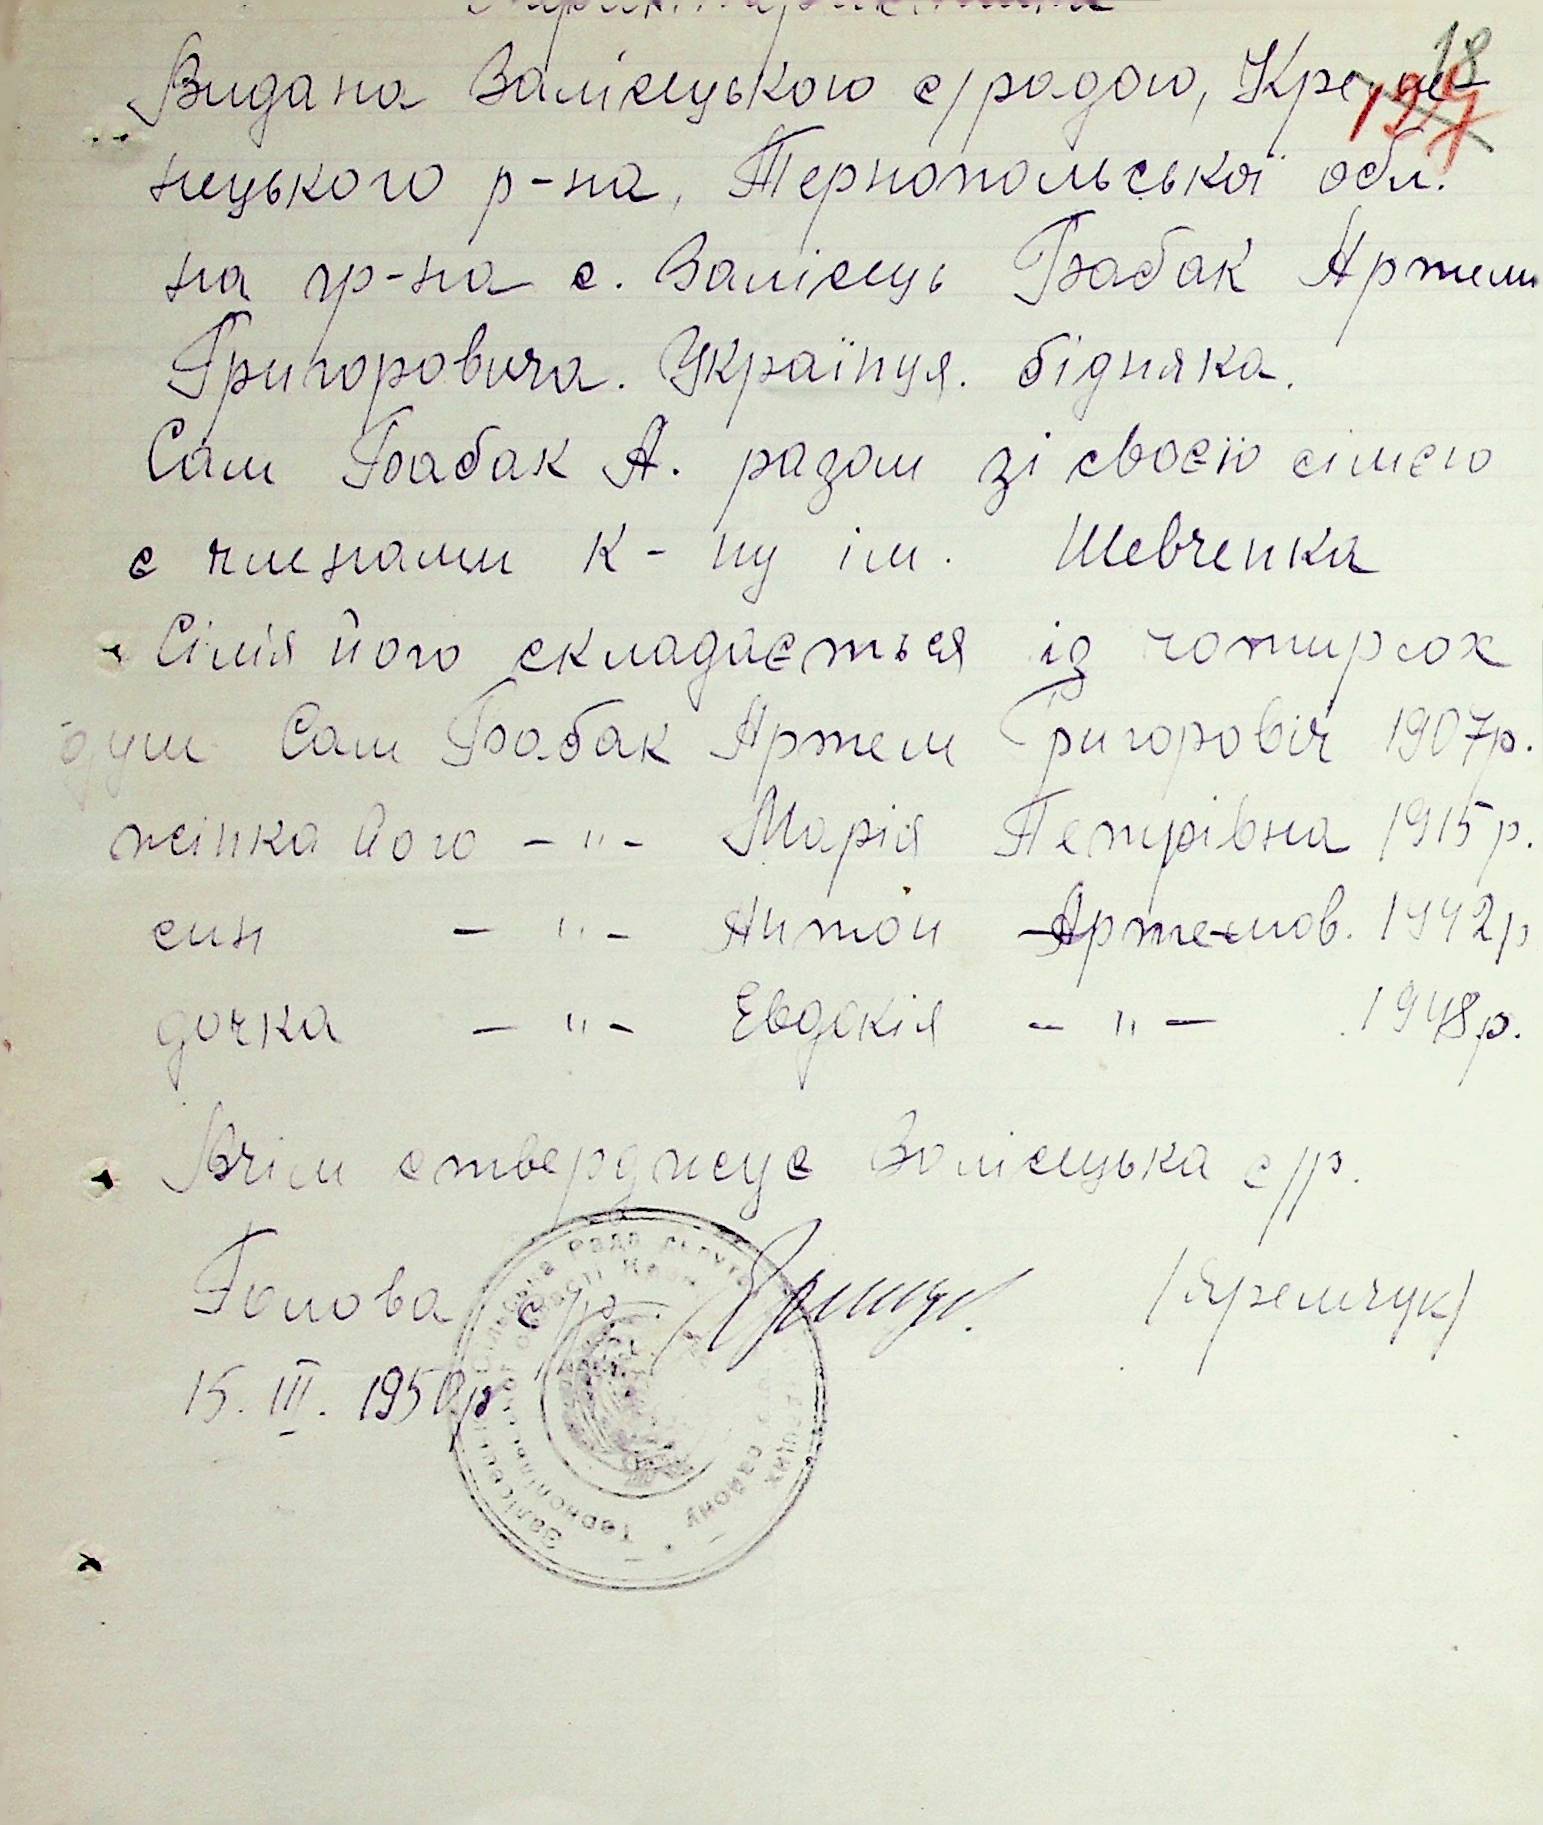 Характеристика
18
197
Видана Залісецькою с/радою, Креме-
нецького р-на, Тернопольської обл.
на гр-на с. Залісець Бабак Артем
Григоровича. Українця. бідняка.
Сам Бабак А. разом зі своєю сімєю
є членами к-пу ім. Шевченка
Сімія його складається із чотирьох
душ Сам Бабак Артем Григоровіч 1907р.
жінка його -"- Марія Петрівна 1915р.
син -"- Антон Артемов. 1942р
дочка -"- Евдокія -"- 1948р.
В чім стверджує Залісецька с/р.
Голова с/р. (Яремчук)
15. III. 1950р
Залісецька Сільська Рада депутатів трудящих
Тернопільської області району